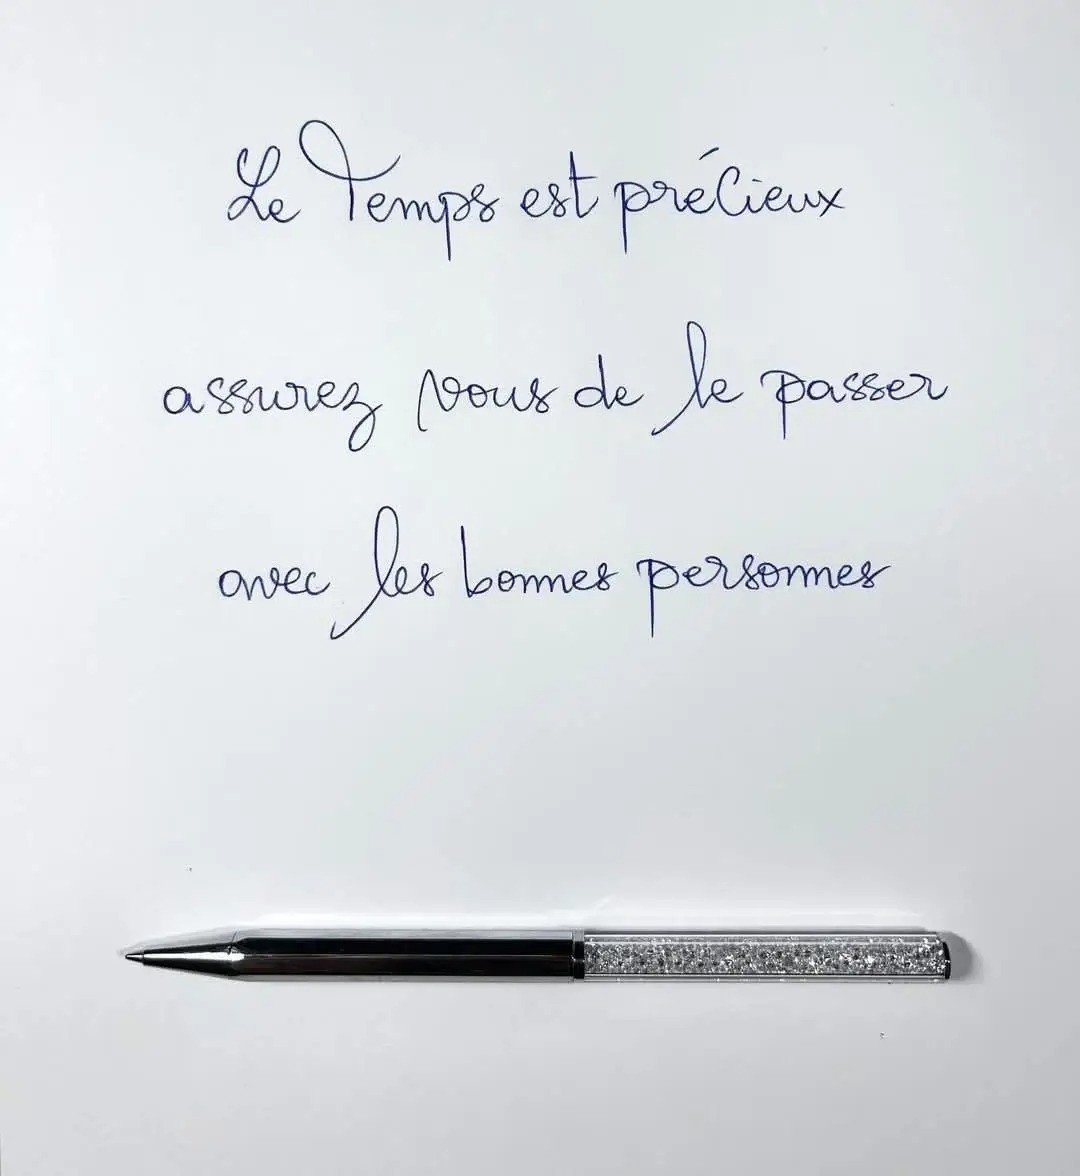 Le Temps est précieux
assurez vous de le passer
avec les bonnes personnes